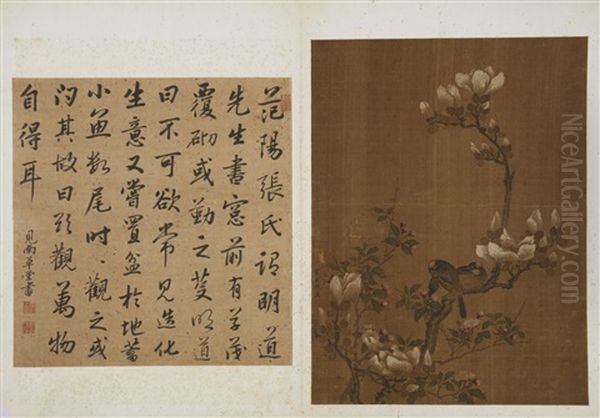 范陽張氏謂明道
先生書窓前有草茂
覆砌或勸之芟明道
曰不可欲常見造化
生意又嘗置盆於地蓄
小魚數尾時〻觀之或
问其故曰欲觀萬物
自得耳
見南草堂書
NiceArtGallery.com